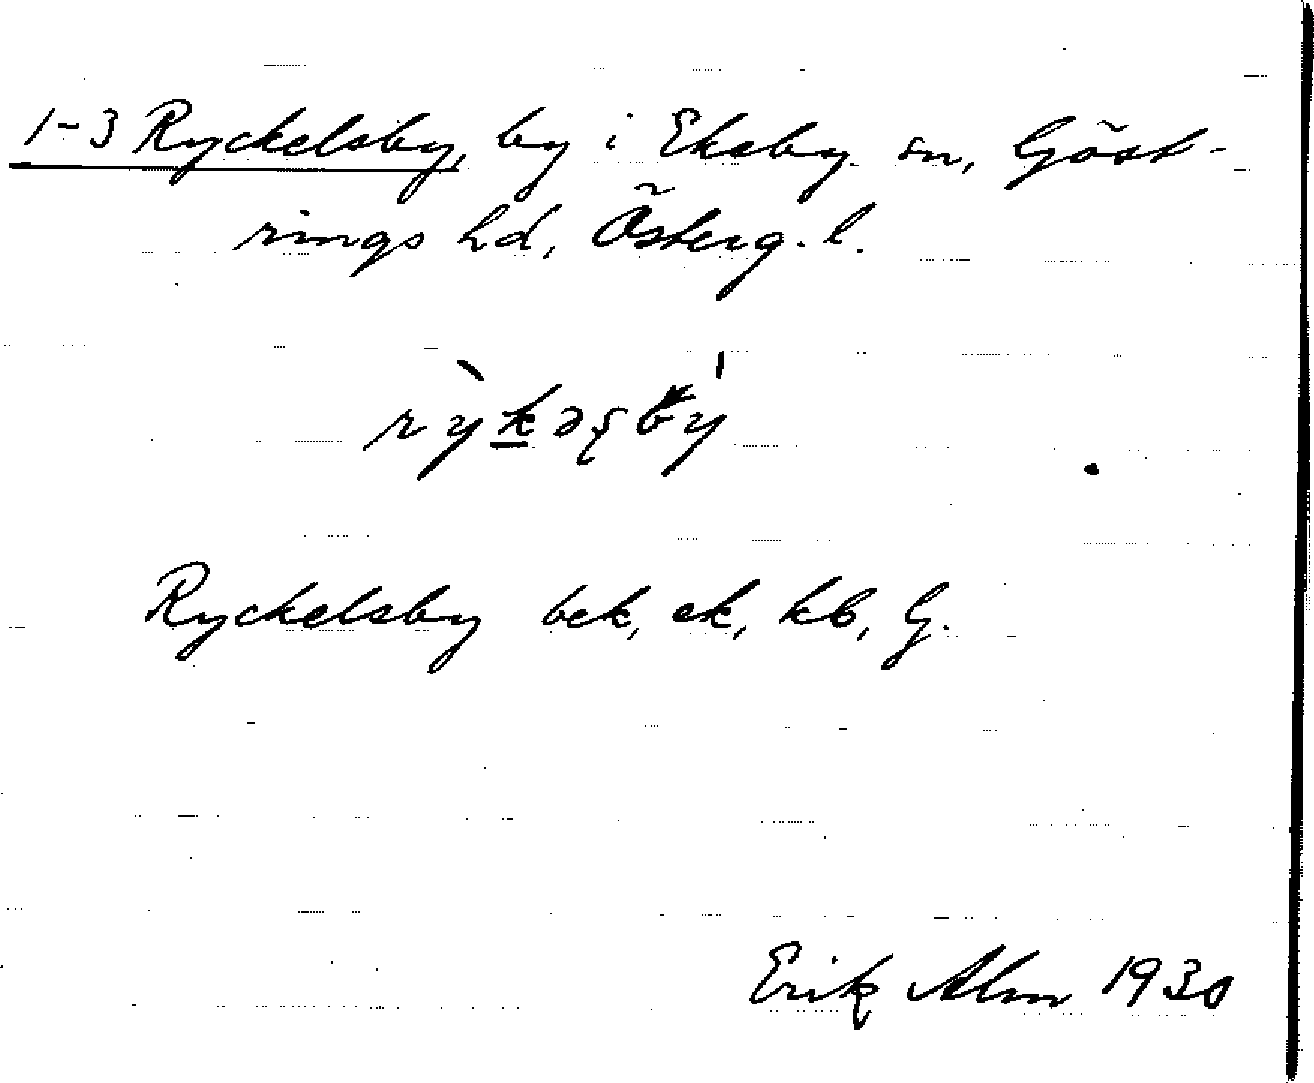 1-3 Ryckelsby, by i Ekeby sn, Göst-
rings hd, Österg. l.
Ryckelsby bek, ek, kb, G.
Erik Alm 1930